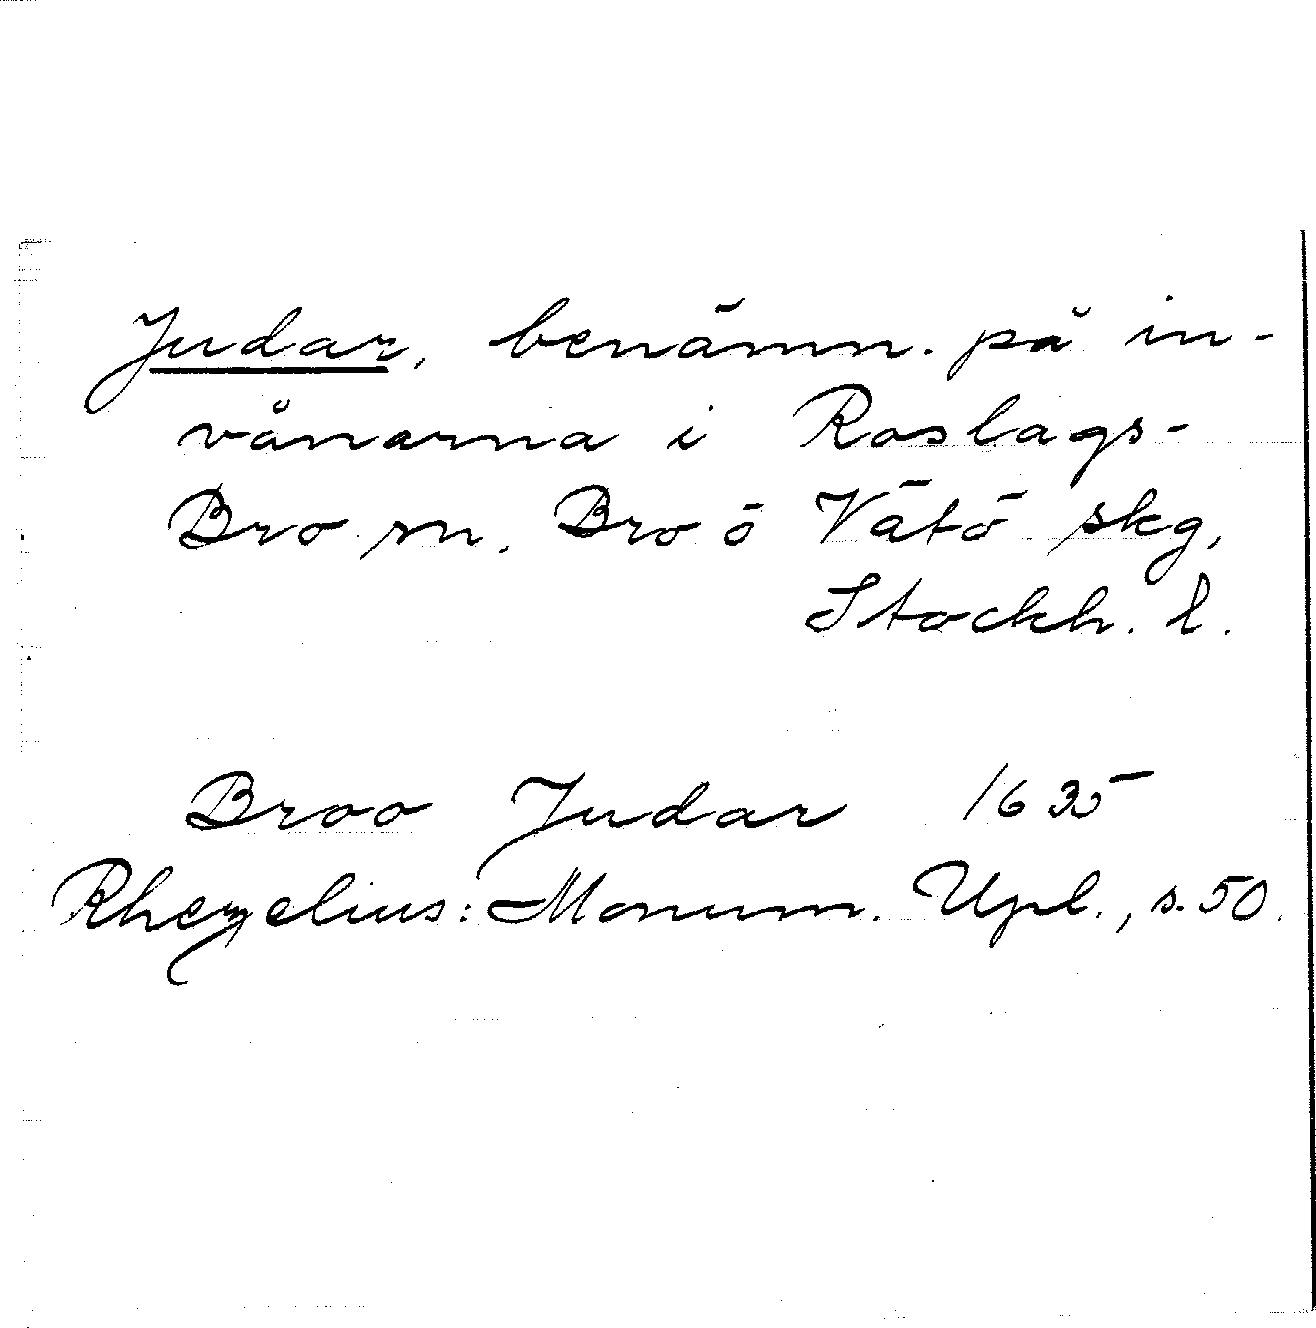 Judar, benämn. på in-
vånarna i Roslags-
Bro sn. Bro ö Vätö skg,
Stockh. l.
Broo Judar 1635
Rhezelius: Monum. Upl., s. 50.